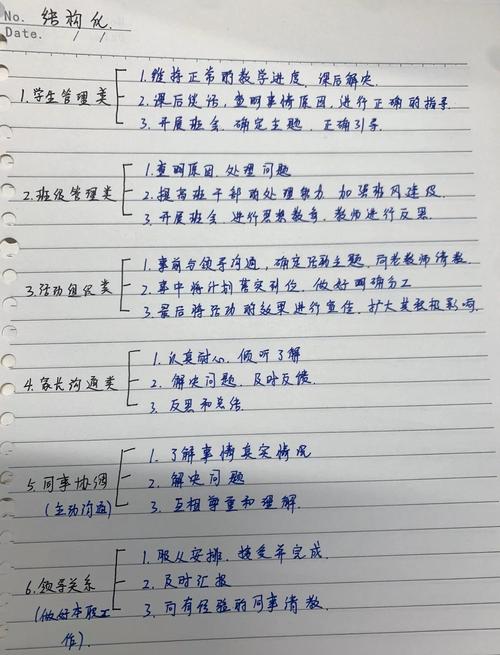 No. 结构化
Date. / /
1.学生管理类
1.维持正常的教学进度，课后解决.
2.课后谈话，查明事情原因，进行正确的指导.
3.开展班会，确定主题，正确引导.
2.班级管理类
1.查明原因，处理问题
2.提高班干部的处理能力，加强班风建设.
3.开展班会，进行思想教育，教师进行反思.
3.活动组织类
1.事前与领导沟通，确定活动主题，向老教师请教.
2.事中将计划落实到位，做好明确分工
3.最后将活动的效果进行宣传，扩大其积极影响.
4.家长沟通类
1.认真耐心，倾听了解
2.解决问题，及时反馈.
3.反思和总结.
5.同事协调
(主动沟通)
1.了解事情真实情况
2.解决问题
3.互相尊重和理解.
6.领导关系
(做好本职工
作).
1.服从安排，接受并完成.
2.及时汇报
3.向有经验的同事请教.